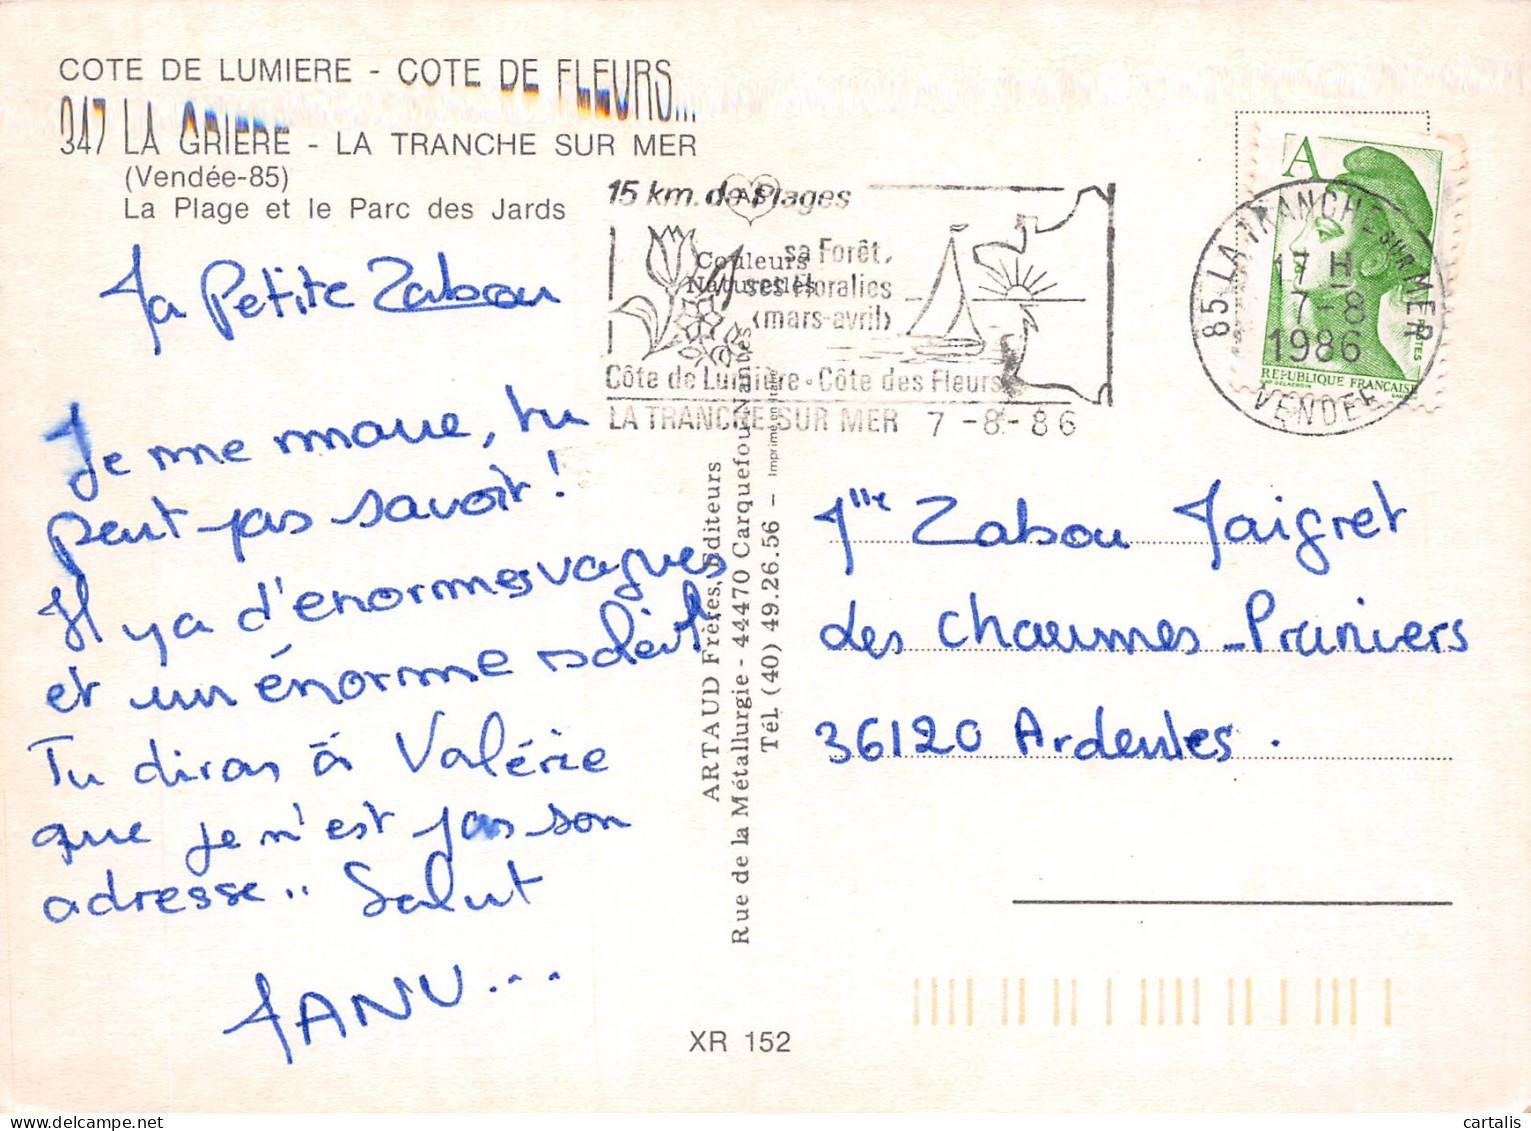 COTE DE LUMIERE - COTE DE FLEURS...
347 LA GRIERE - LA TRANCHE SUR MER
(Vendée-85)
La Plage et le Parc des Jards
Ma Petite Zabou
Je me marre, tu
peut pas savoir !
Il y a d'énormes vagues
et un énorme soleil.
Tu diras à Valérie
que je n'est pas son
adresse.. Salut
MANU...
15 km. de Plages
sa Forêt,
ses Floralies
(mars-avril)
Côte de Lumière - Côte des Fleurs
LA TRANCHE SUR MER 7 -8 - 86
AF
Couleurs
Naturelles
ARTAUD Frères, Editeurs
Rue de la Métallurgie - 44470 Carquefou-Nantes
Tél. (40) 49.26.56 - Imprimé en Italie
XR 152
A
POSTES
REPUBLIQUE FRANCAISE
85 LA TRANCHE SUR MER
17 H
7-8
1986
VENDEE
Mlle Zabou Maigret
Les Chaumes - Pruniers
36120 Ardentes.
cartalis